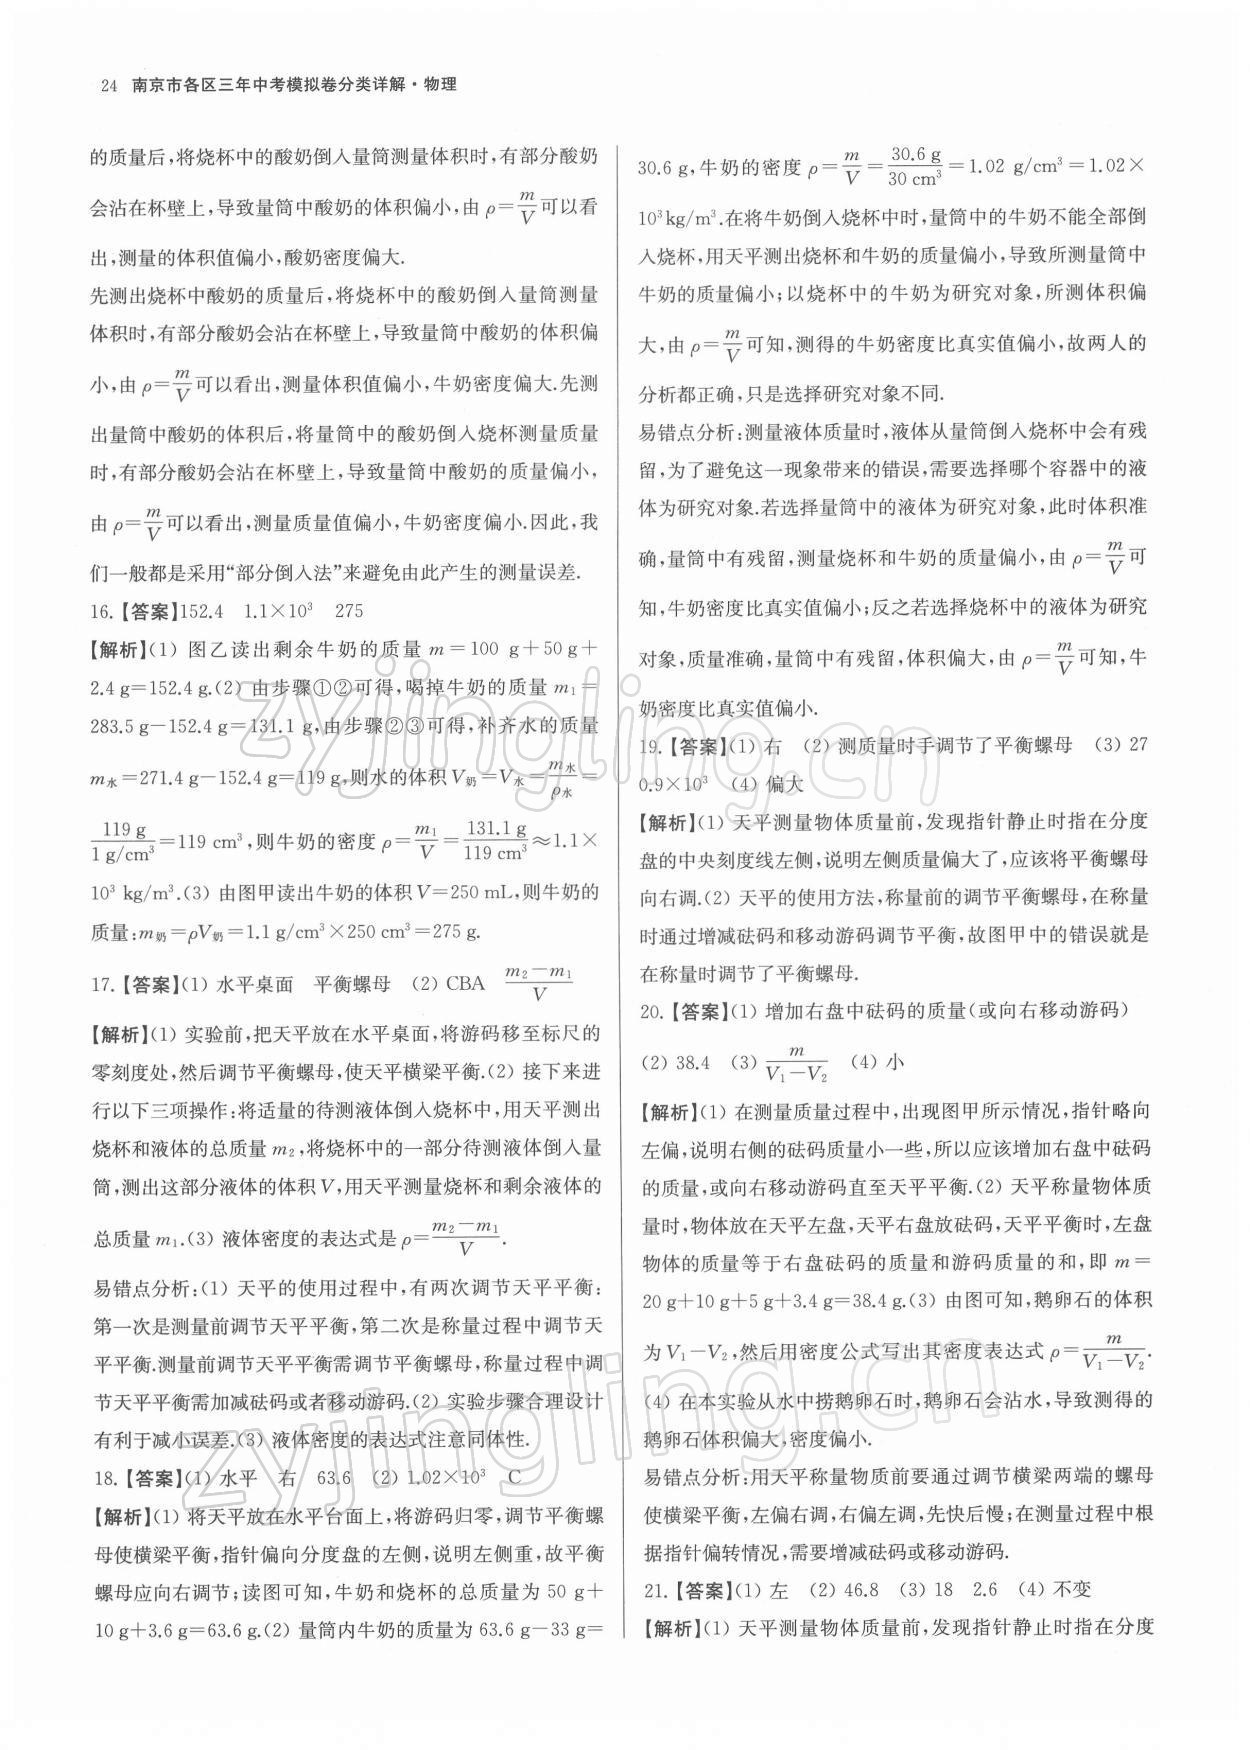 24 南京市各区三年中考模拟卷分类详解·物理
的质量后,将烧杯中的酸奶倒入量筒测量体积时,有部分酸奶
会沾在杯壁上,导致量筒中酸奶的体积偏小,由 ρ=m/V 可以看
出,测量的体积值偏小,酸奶密度偏大.
先测出烧杯中酸奶的质量后,将烧杯中的酸奶倒入量筒测量
体积时,有部分酸奶会沾在杯壁上,导致量筒中酸奶的体积偏
小,由 ρ=m/V 可以看出,测量体积值偏小,牛奶密度偏大.先测
出量筒中酸奶的体积后,将量筒中的酸奶倒入烧杯测量质量
时,有部分酸奶会沾在杯壁上,导致量筒中酸奶的质量偏小,
由 ρ=m/V 可以看出,测量质量值偏小,牛奶密度偏小.因此,我
们一般都是采用“部分倒入法”来避免由此产生的测量误差.
16.【答案】152.4 1.1×10³ 275
【解析】(1) 图乙读出剩余牛奶的质量 m=100 g+50 g+
2.4 g=152.4 g.(2) 由步骤①②可得,喝掉牛奶的质量 m₁=
283.5 g-152.4 g=131.1 g,由步骤②③可得,补齐水的质量
m水=271.4 g-152.4 g=119 g,则水的体积 V奶=V水=m水/ρ水=
119 g/1 g/cm³=119 cm³,则牛奶的密度 ρ=m₁/V=131.1 g/119 cm³≈1.1×
10³ kg/m³.(3) 由图甲读出牛奶的体积 V=250 mL,则牛奶的
质量:m奶=ρV奶=1.1 g/cm³×250 cm³=275 g.
17.【答案】(1) 水平桌面 平衡螺母 (2) CBA (m₂-m₁)/V
【解析】(1) 实验前,把天平放在水平桌面,将游码移至标尺的
零刻度处,然后调节平衡螺母,使天平横梁平衡.(2) 接下来进
行以下三项操作:将适量的待测液体倒入烧杯中,用天平测出
烧杯和液体的总质量 m₂,将烧杯中的一部分待测液体倒入量
筒,测出这部分液体的体积 V,用天平测量烧杯和剩余液体的
总质量 m₁.(3) 液体密度的表达式是 ρ=(m₂-m₁)/V.
易错点分析:(1) 天平的使用过程中,有两次调节天平平衡:
第一次是测量前调节天平平衡,第二次是称量过程中调节天
平平衡.测量前调节天平平衡需调节平衡螺母,称量过程中调
节天平平衡需加减砝码或者移动游码.(2) 实验步骤合理设计
有利于减小误差.(3) 液体密度的表达式注意同体性.
18.【答案】(1) 水平 右 63.6 (2) 1.02×10³ C
【解析】(1) 将天平放在水平台面上,将游码归零,调节平衡螺
母使横梁平衡,指针偏向分度盘的左侧,说明左侧重,故平衡
螺母应向右调节;读图可知,牛奶和烧杯的总质量为 50 g+
10 g+3.6 g=63.6 g.(2) 量筒内牛奶的质量为 63.6 g-33 g=
30.6 g,牛奶的密度 ρ=m/V=30.6 g/30 cm³=1.02 g/cm³=1.02×
10³ kg/m³.在将牛奶倒入烧杯中时,量筒中的牛奶不能全部倒
入烧杯,用天平测出烧杯和牛奶的质量偏小,导致所测量筒中
牛奶的质量偏小;以烧杯中的牛奶为研究对象,所测体积偏
大,由 ρ=m/V 可知,测得的牛奶密度比真实值偏小,故两人的
分析都正确,只是选择研究对象不同.
易错点分析:测量液体质量时,液体从量筒倒入烧杯中会有残
留,为了避免这一现象带来的错误,需要选择哪个容器中的液
体为研究对象.若选择量筒中的液体为研究对象,此时体积准
确,量筒中有残留,测量烧杯和牛奶的质量偏小,由 ρ=m/V 可
知,牛奶密度比真实值偏小;反之若选择烧杯中的液体为研究
对象,质量准确,量筒中有残留,体积偏大,由 ρ=m/V 可知,牛
奶密度比真实值偏小.
19.【答案】(1) 右 (2) 测质量时手调节了平衡螺母 (3) 27
0.9×10³ (4) 偏大
【解析】(1) 天平测量物体质量前,发现指针静止时指在分度
盘的中央刻度线左侧,说明左侧质量偏大了,应该将平衡螺母
向右调.(2) 天平的使用方法,称量前的调节平衡螺母,在称量
时通过增减砝码和移动游码调节平衡,故图甲中的错误就是
在称量时调节了平衡螺母.
20.【答案】(1) 增加右盘中砝码的质量(或向右移动游码)
(2) 38.4 (3) m/(V₁-V₂) (4) 小
【解析】(1) 在测量质量过程中,出现图甲所示情况,指针略向
左偏,说明右侧的砝码质量小一些,所以应该增加右盘中砝码
的质量,或向右移动游码直至天平平衡.(2) 天平称量物体质
量时,物体放在天平左盘,天平右盘放砝码,天平平衡时,左盘
物体的质量等于右盘砝码的质量和游码质量的和,即 m=
20 g+10 g+5 g+3.4 g=38.4 g.(3) 由图可知,鹅卵石的体积
为 V₁-V₂,然后用密度公式写出其密度表达式 ρ=m/(V₁-V₂).
(4) 在本实验从水中捞鹅卵石时,鹅卵石会沾水,导致测得的
鹅卵石体积偏大,密度偏小.
易错点分析:用天平称量物质前要通过调节横梁两端的螺母
使横梁平衡,左偏右调,右偏左调,先快后慢;在测量过程中根
据指针偏转情况,需要增减砝码或移动游码.
21.【答案】(1) 左 (2) 46.8 (3) 18 2.6 (4) 不变
【解析】(1) 天平测量物体质量前,发现指针静止时指在分度
zyjingling.cn
zyjingling.cn